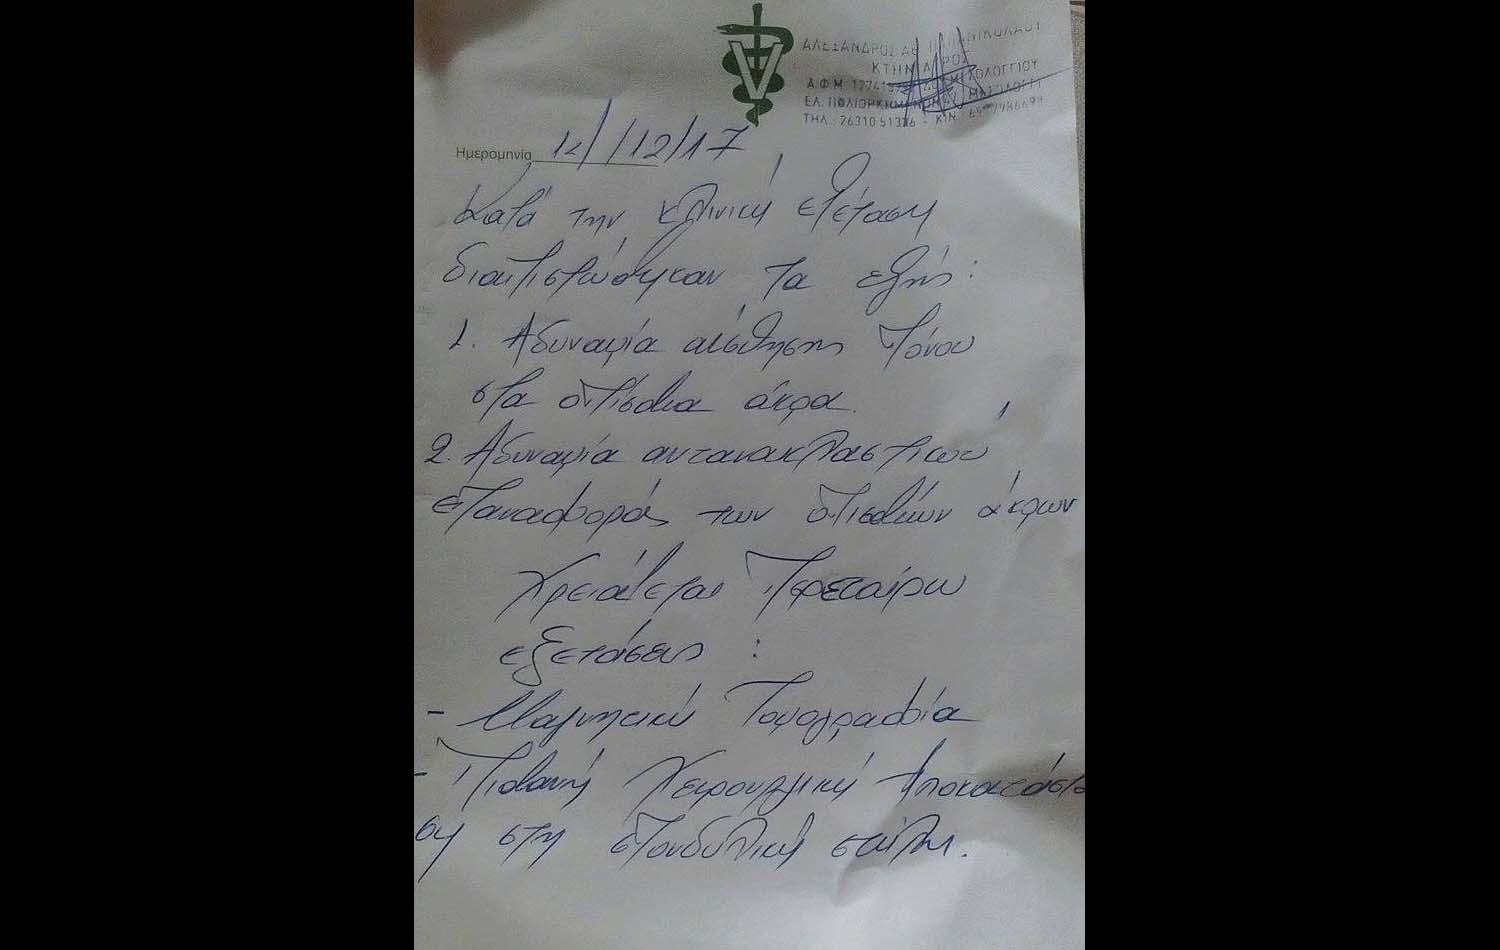 ΑΛΕΞΑΝΔΡΟΣ ΑΘ ΠΑΠΑΝΙΚΟΛΑΟΥ
ΚΤΗΝΙΑΤΡΟΣ
Α Φ Μ
ΤΗΛ.: 26310 51336 - ΚΙΝ.
Ημερομηνία 12/12/17
Κατά την κλινική εξέταση
διαπιστώθηκαν τα εξής:
1. Αδυναμία αίσθησης πόνου
στα οπίσθια άκρα.
2. Αδυναμία αντανακλαστικού
επαναφοράς των οπισθίων άκρων
Χρειάζεται περεταίρω
εξετάσεις :
- Μαγνητική Τομογραφία
- Πιθανή Χειρουργική Αποκατάστα
ση στη σπονδυλική στήλη.